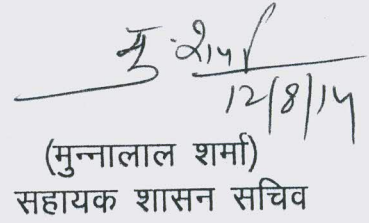 मु. शर्मा
12/8/14
(मुन्नालाल शर्मा)
सहायक शासन सचिव